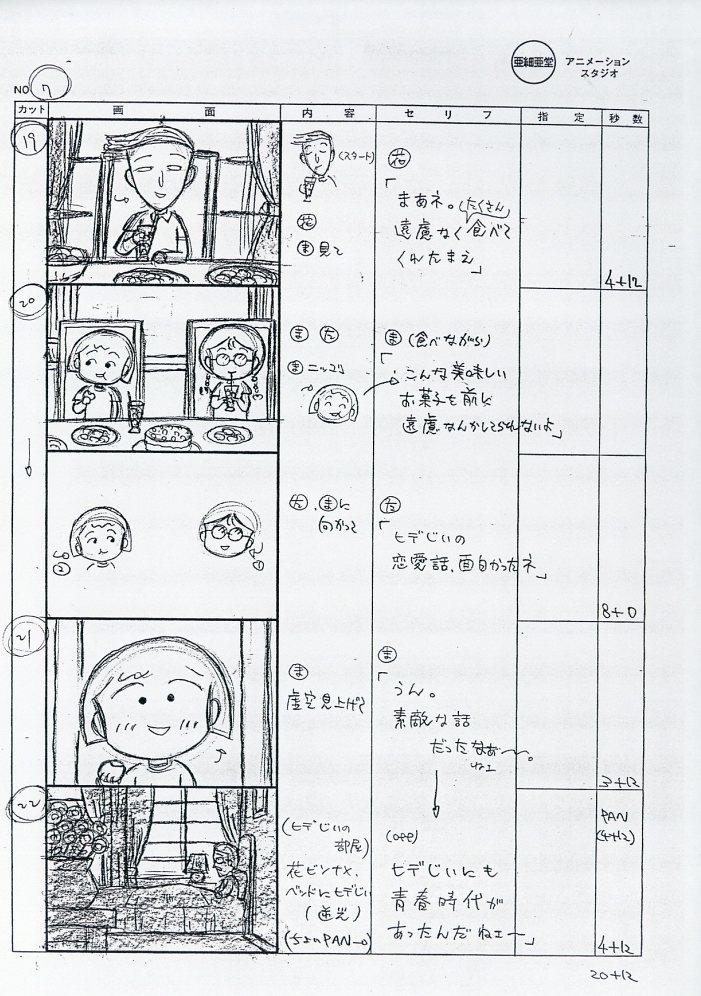 亜細亜堂
アニメーション
スタジオ
NO. 7
カット 画 面 内 容 セ リ フ 指 定 秒 数
19
(スタート)
花
ま 見て
花
「まあネ。たくさん
遠慮なく食べて
くれたまえ」
4+12
20
ま た
ま ニッコリ
ま (食べながら)
「こんな美味しい
お菓子を前に
遠慮なんかしてられないよ」
た、まに
向かって
た
「ヒデじいの
恋愛話、面白かったネ」
② ①
8+0
21
ま
虚空見上げて
ま
「うん。
素敵な話
だったなぁ
ねェ
3+12
22
(ヒデじいの
部屋)
花ビンナメ、
ベッドにヒデじい
(逆光)
(OFF)
ヒデじいにも
青春時代が
あったんだねェー」
PAN
(4+12)
4+12
20+12